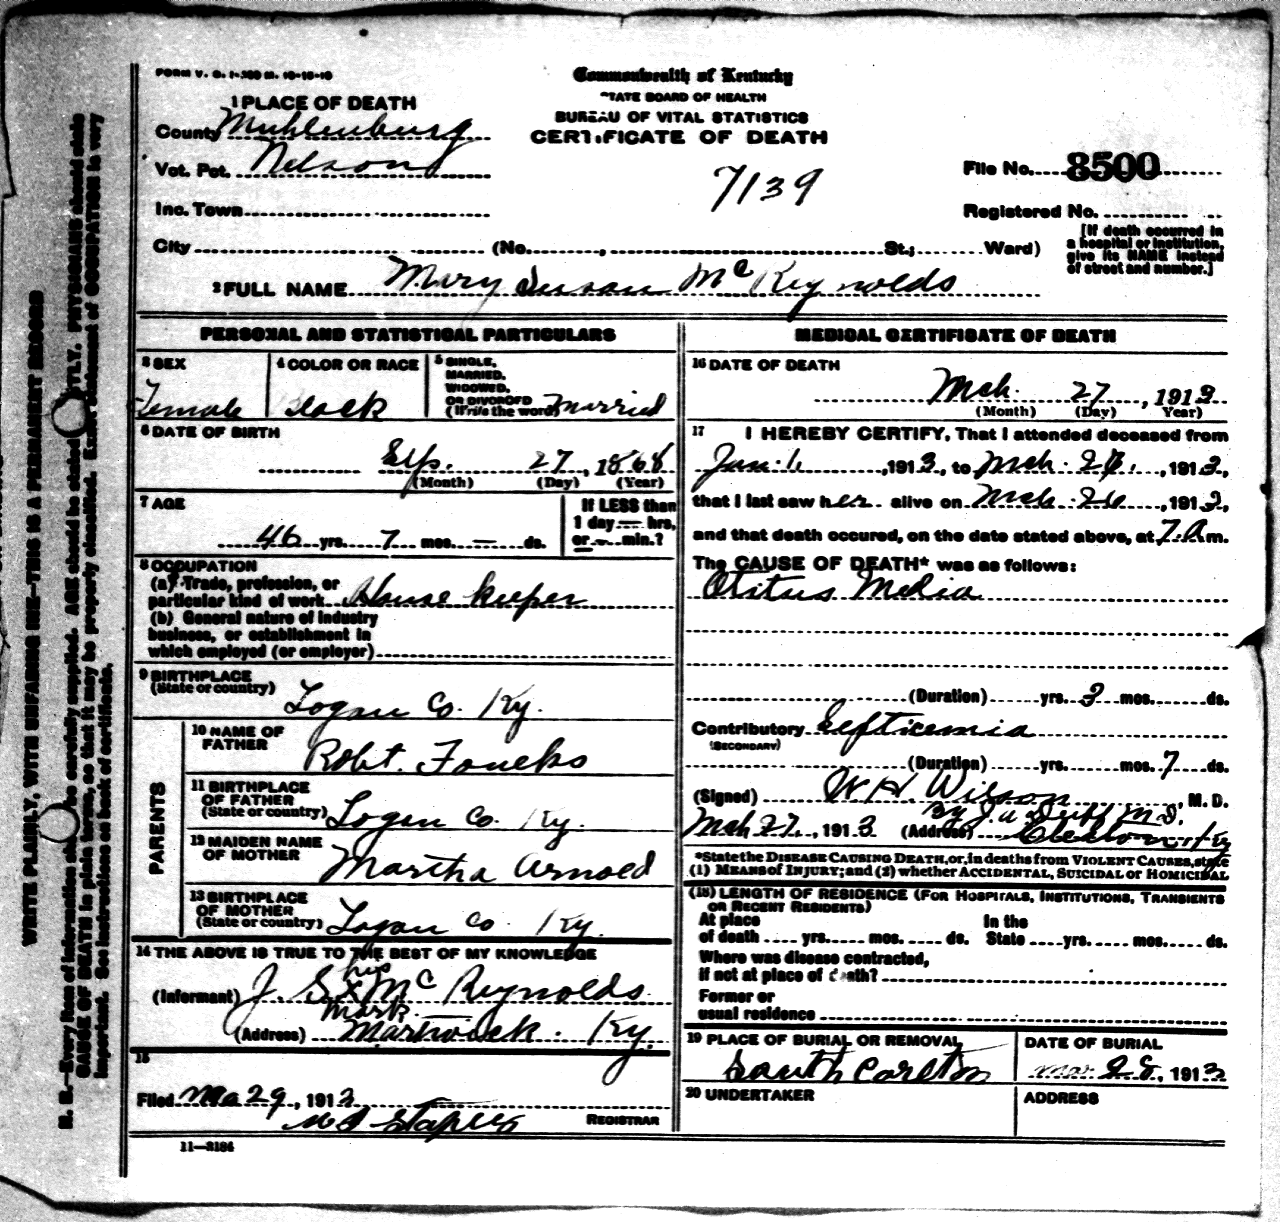 FORM V. S. 1-300 M. 10-18-10
Commonwealth of Kentucky
STATE BOARD OF HEALTH
BUREAU OF VITAL STATISTICS
CERTIFICATE OF DEATH
1 PLACE OF DEATH
County Muhlenburg
Vot. Pct. Nelson
Inc. Town
City (No. , St.; Ward)
7139
File No. 8500
Registered No.
[If death occurred in
a hospital or institution,
give its NAME instead
of street and number.]
2 FULL NAME Mary Susan Mc Reynolds
PERSONAL AND STATISTICAL PARTICULARS
3 SEX
Female
4 COLOR OR RACE
5 SINGLE,
MARRIED,
WIDOWED,
OR DIVORCED
(Write the word) Married
6 DATE OF BIRTH
27, 1868
(Month) (Day) (Year)
7 AGE
46 yrs. 7 mos. — ds.
If LESS than
1 day — hrs,
or — min.?
8 OCCUPATION
(a) Trade, profession, or
particular kind of work House keeper
(b) General nature of industry
business, or establishment in
which employed (or employer)
9 BIRTHPLACE
(State or country)
Logan Co. Ky.
PARENTS
10 NAME OF
FATHER
Robt.
11 BIRTHPLACE
OF FATHER
(State or country) Logan Co. Ky.
12 MAIDEN NAME
OF MOTHER
Martha Arnold
13 BIRTHPLACE
OF MOTHER
(State or country) Logan Co Ky.
14 THE ABOVE IS TRUE TO THE BEST OF MY KNOWLEDGE
his
(Informant) J S x Mc Reynolds
mark
(Address) Martwick. Ky.
15
Filed Ma 29, 1913
REGISTRAR
11—3184
MEDICAL CERTIFICATE OF DEATH
16 DATE OF DEATH
Mch. 27, 1913
(Month) (Day) Year)
17 I HEREBY CERTIFY, That I attended deceased from
Jan. 1, 1913, to Mch. 1913,
that I last saw her alive on Mch. 26, 1913,
and that death occured, on the date stated above, at 7. A m.
The CAUSE OF DEATH* was as follows:
Otitus Media
(Duration) yrs. 3 mos. ds.
Contributory Septicemia
(SECONDARY)
(Duration) yrs. mos. 7 ds.
(Signed) W H. Wilson, M. D.
By J. A. Duff M.D.
Mch 27, 1913 (Address) Ky
*State the DISEASE CAUSING DEATH, or, in deaths from VIOLENT CAUSES, state
(1) MEANS of INJURY; and (2) whether ACCIDENTAL, SUICIDAL or HOMICIDAL
(18) LENGTH OF RESIDENCE (FOR HOSPITALS, INSTITUTIONS, TRANSIENTS
OR RECENT RESIDENTS)
At place
of death yrs. mos. ds.
In the
State yrs. mos. ds.
Where was disease contracted,
if not at place of death?
Former or
usual residence
19 PLACE OF BURIAL OR REMOVAL
South Carlton
DATE OF BURIAL
Mar 28, 1913
20 UNDERTAKER
ADDRESS
WRITE PLAINLY, WITH UNFADING INK—THIS IS A PERMANENT RECORD
N. B.—Every item of information should be carefully supplied. AGE should be stated EXACTLY. PHYSICIANS should state
CAUSE OF DEATH in plain terms, so that it may be properly classified. Exact statement of OCCUPATION is very
important. See instructions on back of certificate.